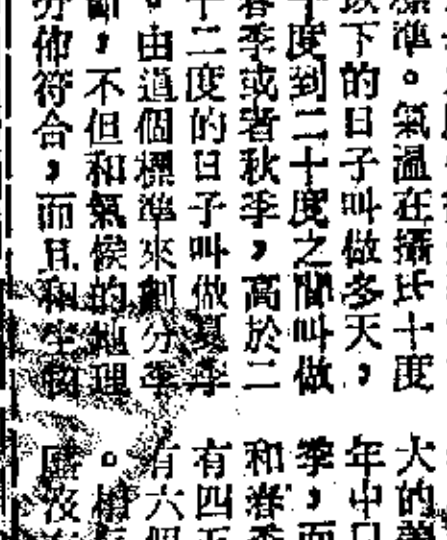 標準。氣溫在攝氏十度
以下的日子叫做冬天，
十度到二十度之間叫做
春季或者秋季，高於二
十二度的日子叫做夏季
。由這個標準來劃分季
節，不但和氣候的地理
分佈符合，而且和生物
大的
年中
季，而
和春季
有四五
有六個
。
沒